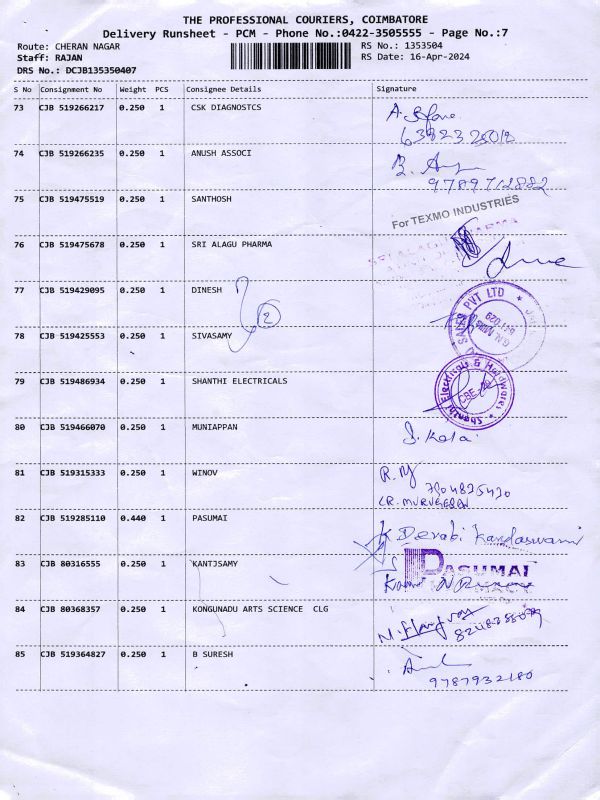 THE PROFESSIONAL COURIERS, COIMBATORE
Delivery Runsheet - PCM - Phone No.:0422-3505555 - Page No.:7
Route: CHERAN NAGAR RS No.: 1353504
Staff: RAJAN RS Date: 16-Apr-2024
DRS No.: DCJB135350407
S No Consignment No Weight PCS Consignee Details Signature
73 CJB 519266217 0.250 1 CSK DIAGNOSTCS
74 CJB 519266235 0.250 1 ANUSH ASSOCI
9789712882
75 CJB 519475519 0.250 1 SANTHOSH For TEXMO INDUSTRIES
76 CJB 519475678 0.250 1 SRI ALAGU PHARMA
77 CJB 519429095 0.250 1 DINESH
2
78 CJB 519425553 0.250 1 SIVASAMY
79 CJB 519486934 0.250 1 SHANTHI ELECTRICALS Shanthi Electricals & Hardwares
80 CJB 519466070 0.250 1 MUNIAPPAN S. Kala
81 CJB 519315333 0.250 1 WINOV
(R. MURUGESAN
82 CJB 519285110 0.440 1 PASUMAI K Devaki Kandaswami
83 CJB 80316555 0.250 1 KANTJSAMY PASUMAI
84 CJB 80368357 0.250 1 KONGUNADU ARTS SCIENCE CLG
85 CJB 519364827 0.250 1 B SURESH
9787932180